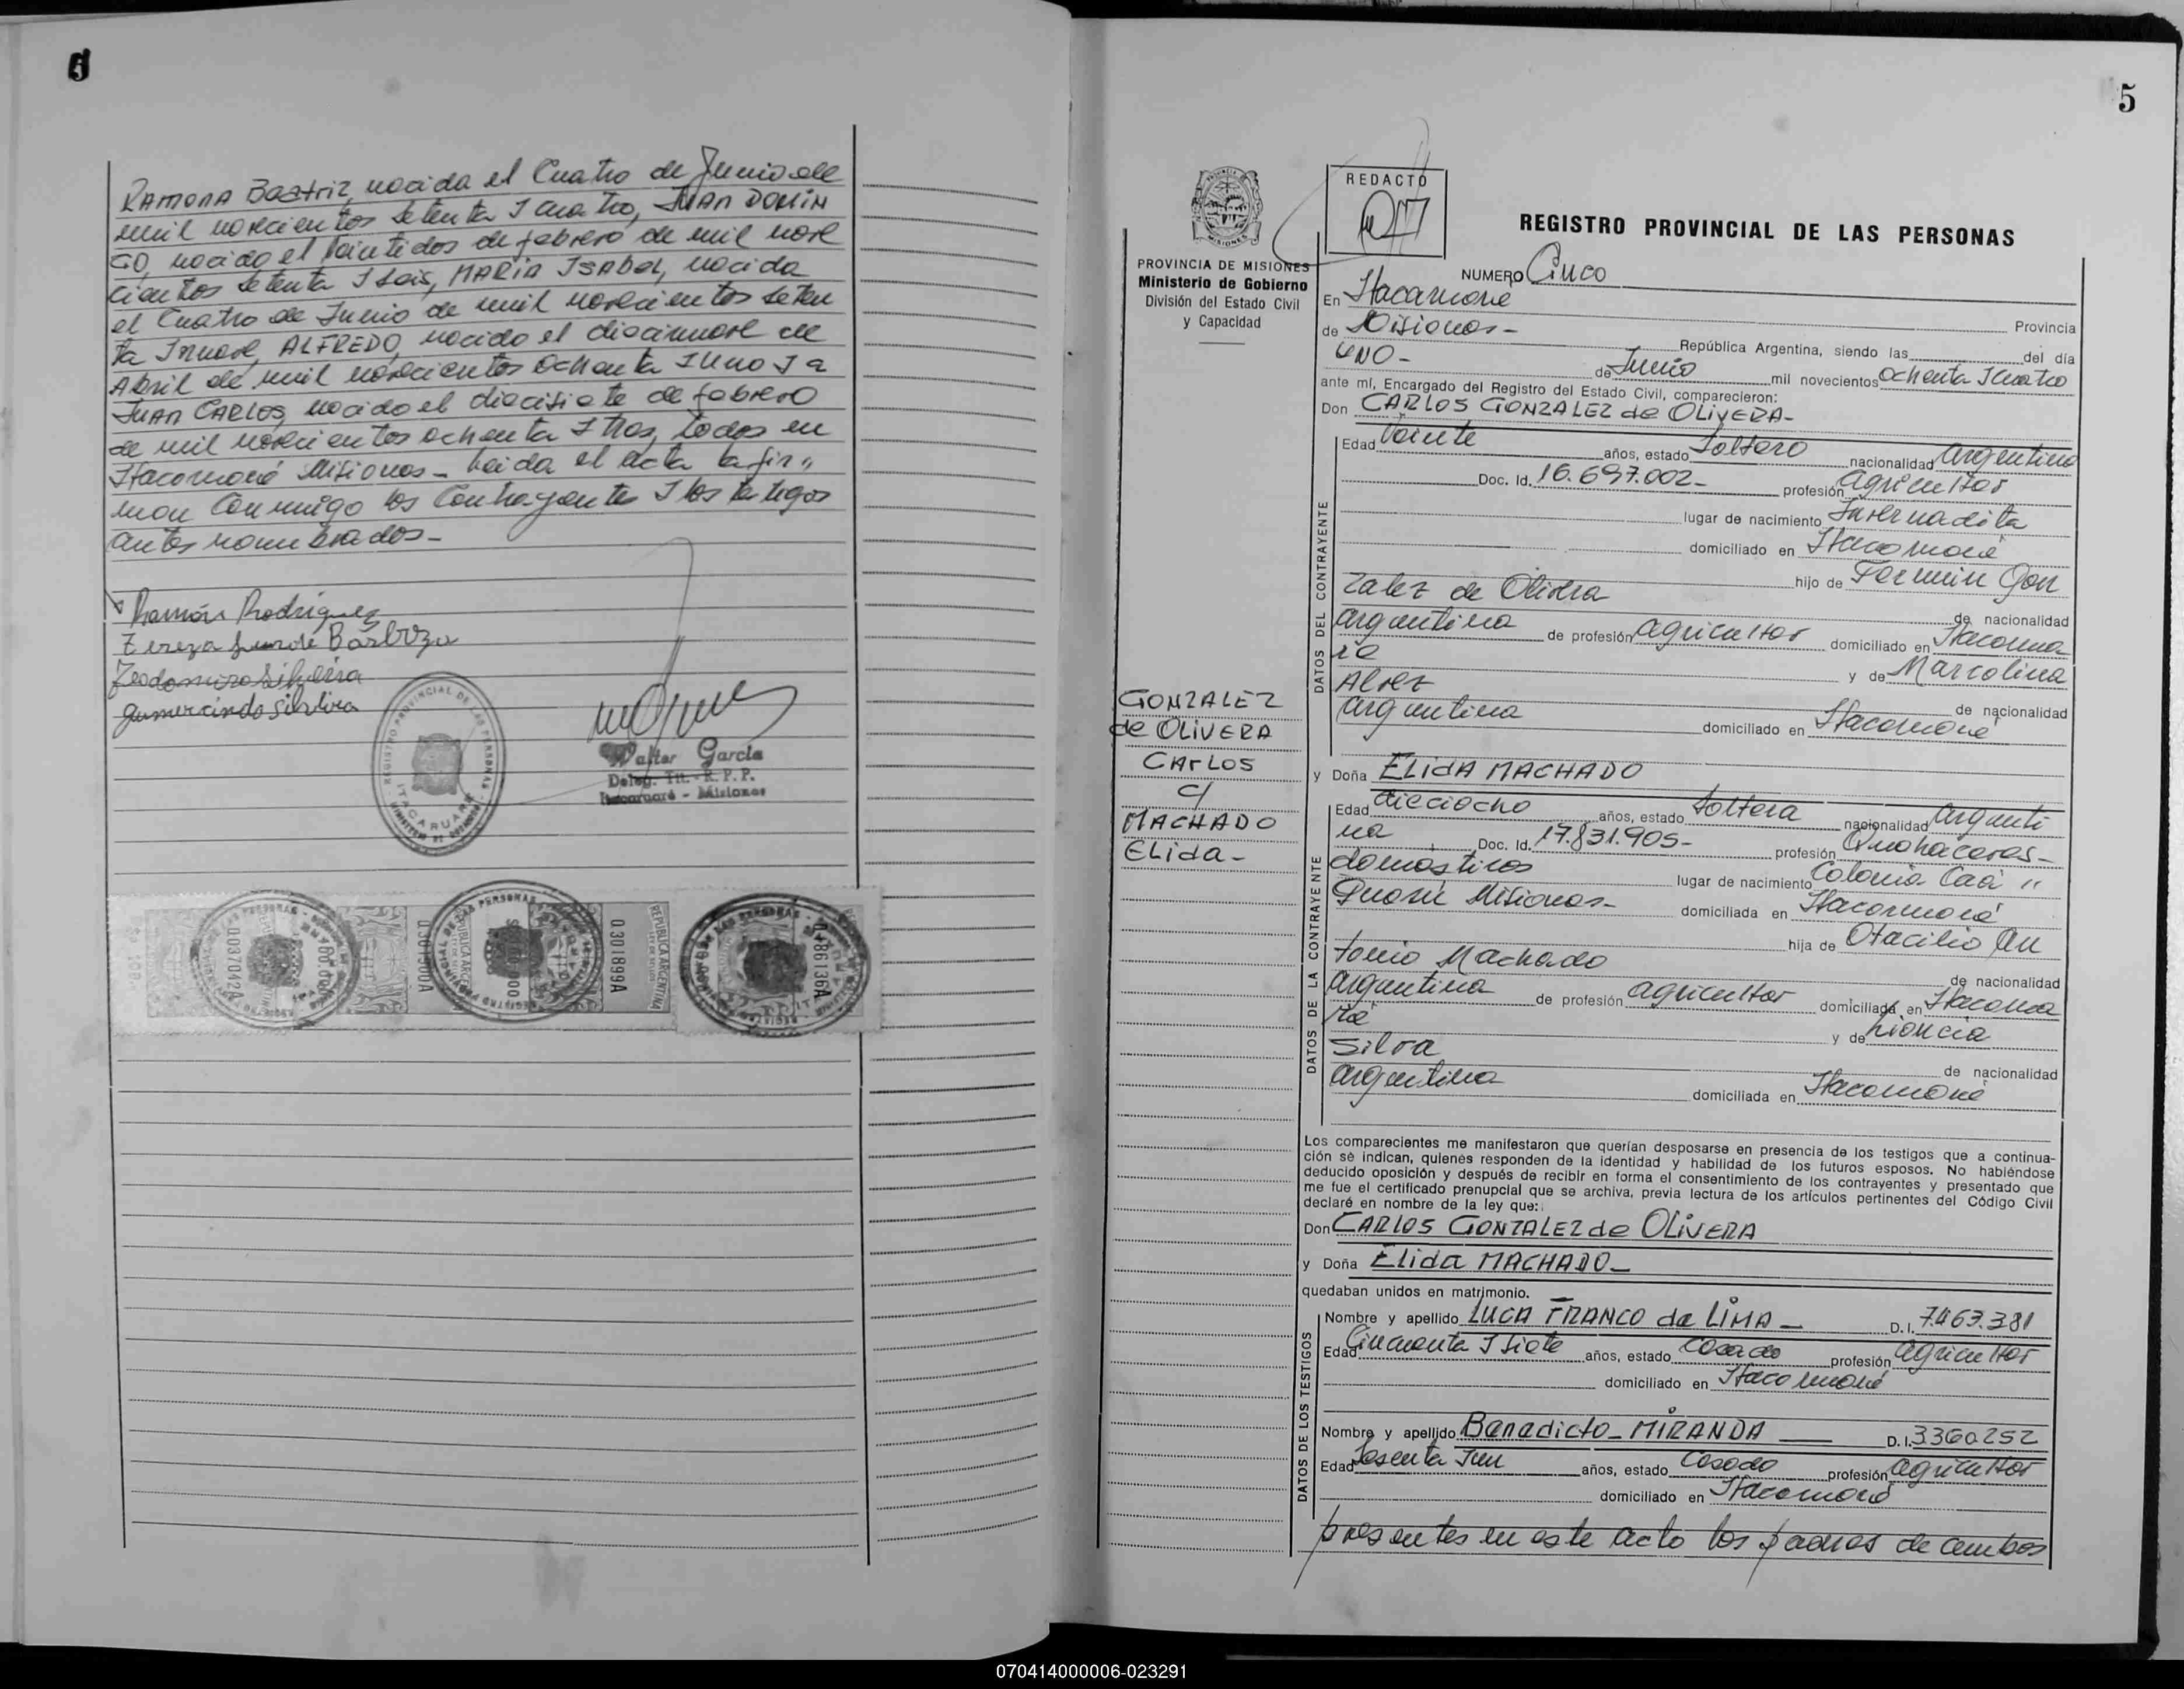 RAMONA Beatriz, nacida el Cuatro de Junio de
mil novecientos setenta y cuatro, JUAN DOMIN
GO, nacido el Veintidos de febrero de mil nove
cientos setenta y seis, MARIA ISABEL, nacida
el Cuatro de Junio de mil novecientos seten
ta y nueve, ALFREDO, nacido el diecinueve de
Abril de mil novecientos ochenta y uno y a
JUAN CARLOS, nacido el diecisiete de febrero
de mil novecientos ochenta y tres, todos en
Itacaruaré Misiones - Leida el acta la fir"
man conmigo los Contrayentes y los testigos
antes nombrados -
Ramón Rodriguez
Barboza
Teodomiro Silveira
Gumercindo Silveira
REGISTRO PROVINCIAL DE LAS PERSONAS
ITACARUARE
Walter Garcia
Deleg. Tit. - R. P. P.
Itacaruaré - Misiones
REPUBLICA ARGENTINA
0370402A
0301899A
0486136A
5
REDACTO
REGISTRO PROVINCIAL DE LAS PERSONAS
PROVINCIA DE MISIONES
Ministerio de Gobierno
División del Estado Civil
y Capacidad
NUMERO Cinco
En Itacaruaré Provincia
de Misiones - República Argentina, siendo las del día
UNO - de Junio mil novecientos ochenta y cuatro
ante mí, Encargado del Registro del Estado Civil, comparecieron:
Don CARLOS GONZALEZ de OLIVERA -
DATOS DEL CONTRAYENTE
Edad Veinte años, estado Soltero nacionalidad Argentina
Doc. Id. 16.697.002 - profesión agricultor
lugar de nacimiento Invernadita
domiciliado en Itacaruaré
hijo de Fermin Gon
zalez de Olivera de nacionalidad
argentina de profesión agricultor domiciliado en Itacarua
ré y de Marcolina
Alvez de nacionalidad
argentina domiciliado en Itacaruaré
GONZALEZ
de OLIVERA
CARLOS
c/
MACHADO
ELida -
y Doña ELIDA MACHADO
DATOS DE LA CONTRAYENTE
Edad dieciocho años, estado Soltera nacionalidad Argenti
na Doc. Id. 17.831.905 - profesión Quehaceres -
domesticos lugar de nacimiento Colonia Caá "
Guazú Misiones - domiciliada en Itacaruaré
hija de Otacilio An
tonio Machado de nacionalidad
argentina de profesión agricultor domiciliada en Itacarua
ré y de Liencia
Silva de nacionalidad
argentina domiciliada en Itacaruaré
Los comparecientes me manifestaron que querían desposarse en presencia de los testigos que a continua-
ción se indican, quienes responden de la identidad y habilidad de los futuros esposos. No habiéndose
deducido oposición y después de recibir en forma el consentimiento de los contrayentes y presentado que
me fue el certificado prenupcial que se archiva, previa lectura de los artículos pertinentes del Código Civil
declaré en nombre de la ley que:
Don CARLOS GONZALEZ de OLIVERA
y Doña Elida MACHADO -
quedaban unidos en matrimonio.
DATOS DE LOS TESTIGOS
Nombre y apellido LUCA FRANCO de LIMA - D.I. 7.463.381
Edad Cincuenta y siete años, estado Casado profesión agricultor
domiciliado en Itacaruaré
Nombre y apellido Benedicto MIRANDA D.I. 3360252
Edad Sesenta y un años, estado Casado profesión agricultor
domiciliado en Itacaruaré
presentes en este acto los padres de ambos
070414000006-023291